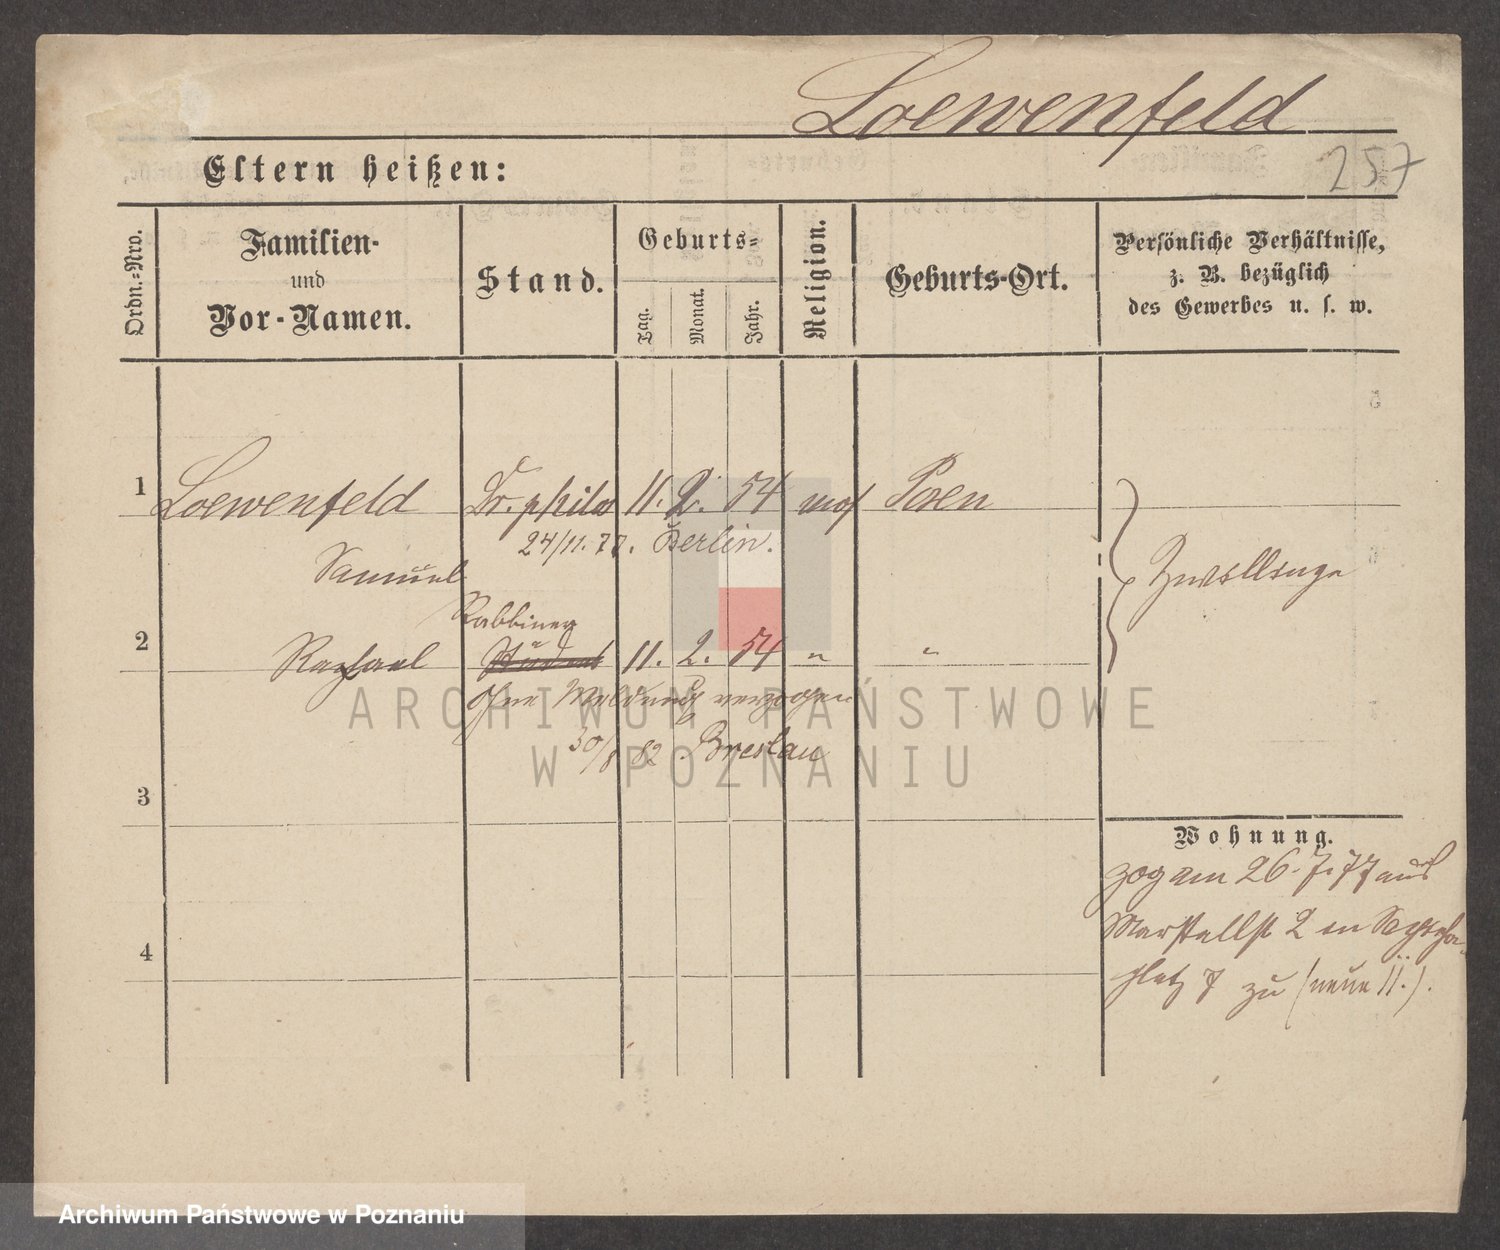 Loewenfeld
Eltern heißen:
257
Ordn.=Nro.
Familien-
und
Vor-Namen.
Stand.
Geburts=
Tag.
Monat.
Jahr.
Religion.
Geburts-Ort.
Persönliche Verhältnisse,
z. B. bezüglich
des Gewerbes u. s. w.
1 Loewenfeld Dr. philos 11. 2. 54 mos Posen
24/11. 77. Berlin.
Samuel
Zwillinge
Rabbiner
2 Raphael Student 11. 2. 54 " "
Ohne Meldung verzogen
30/8 82. Breslau
ARCHIWUM PAŃSTWOWE
W POZNANIU
3
Wohnung.
zog am 26. 7. 77 aus
Marstallst 2 in
4
platz 7 zu (neue 11.).
Archiwum Państwowe w Poznaniu